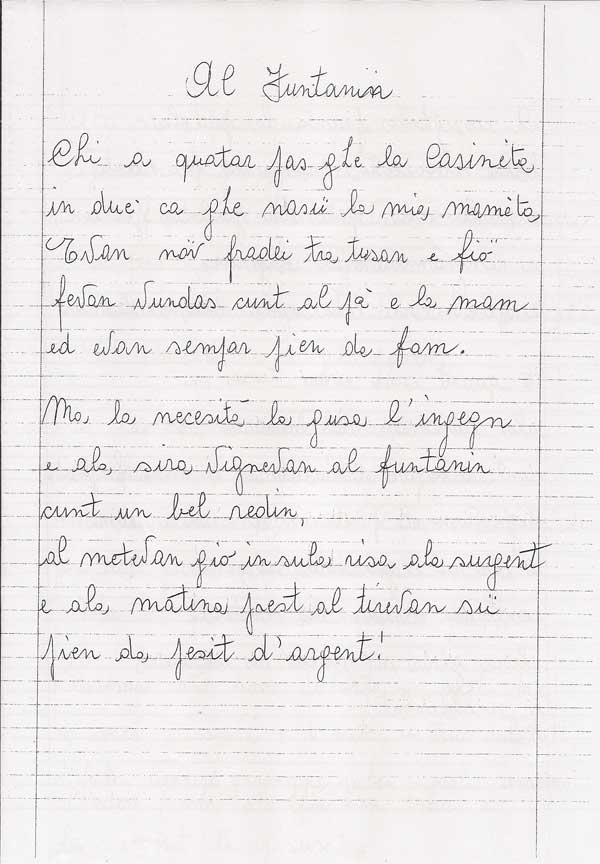 Al Funtanin
Chi a quatar pas ghe la Casinèta
in duè ca ghe nasü la mia mamèta,
Evan növ fradei tra tusan e fiö
fevan vundas cunt al pà e la mam
ed evan sempar pien da fam.
Ma, la necesità la gusa l'ingegn
e ala, sira, vignevan al funtanin
cunt un bel redin,
al metevan giò in sula, risa, ala surgent
e ala, matina prest al tirevan sü
pien da, pesit d'argent!